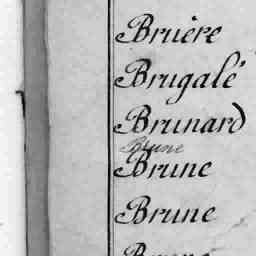 Bruère
Brugalé
Brunard
Brune
Brune
Brune
Brune